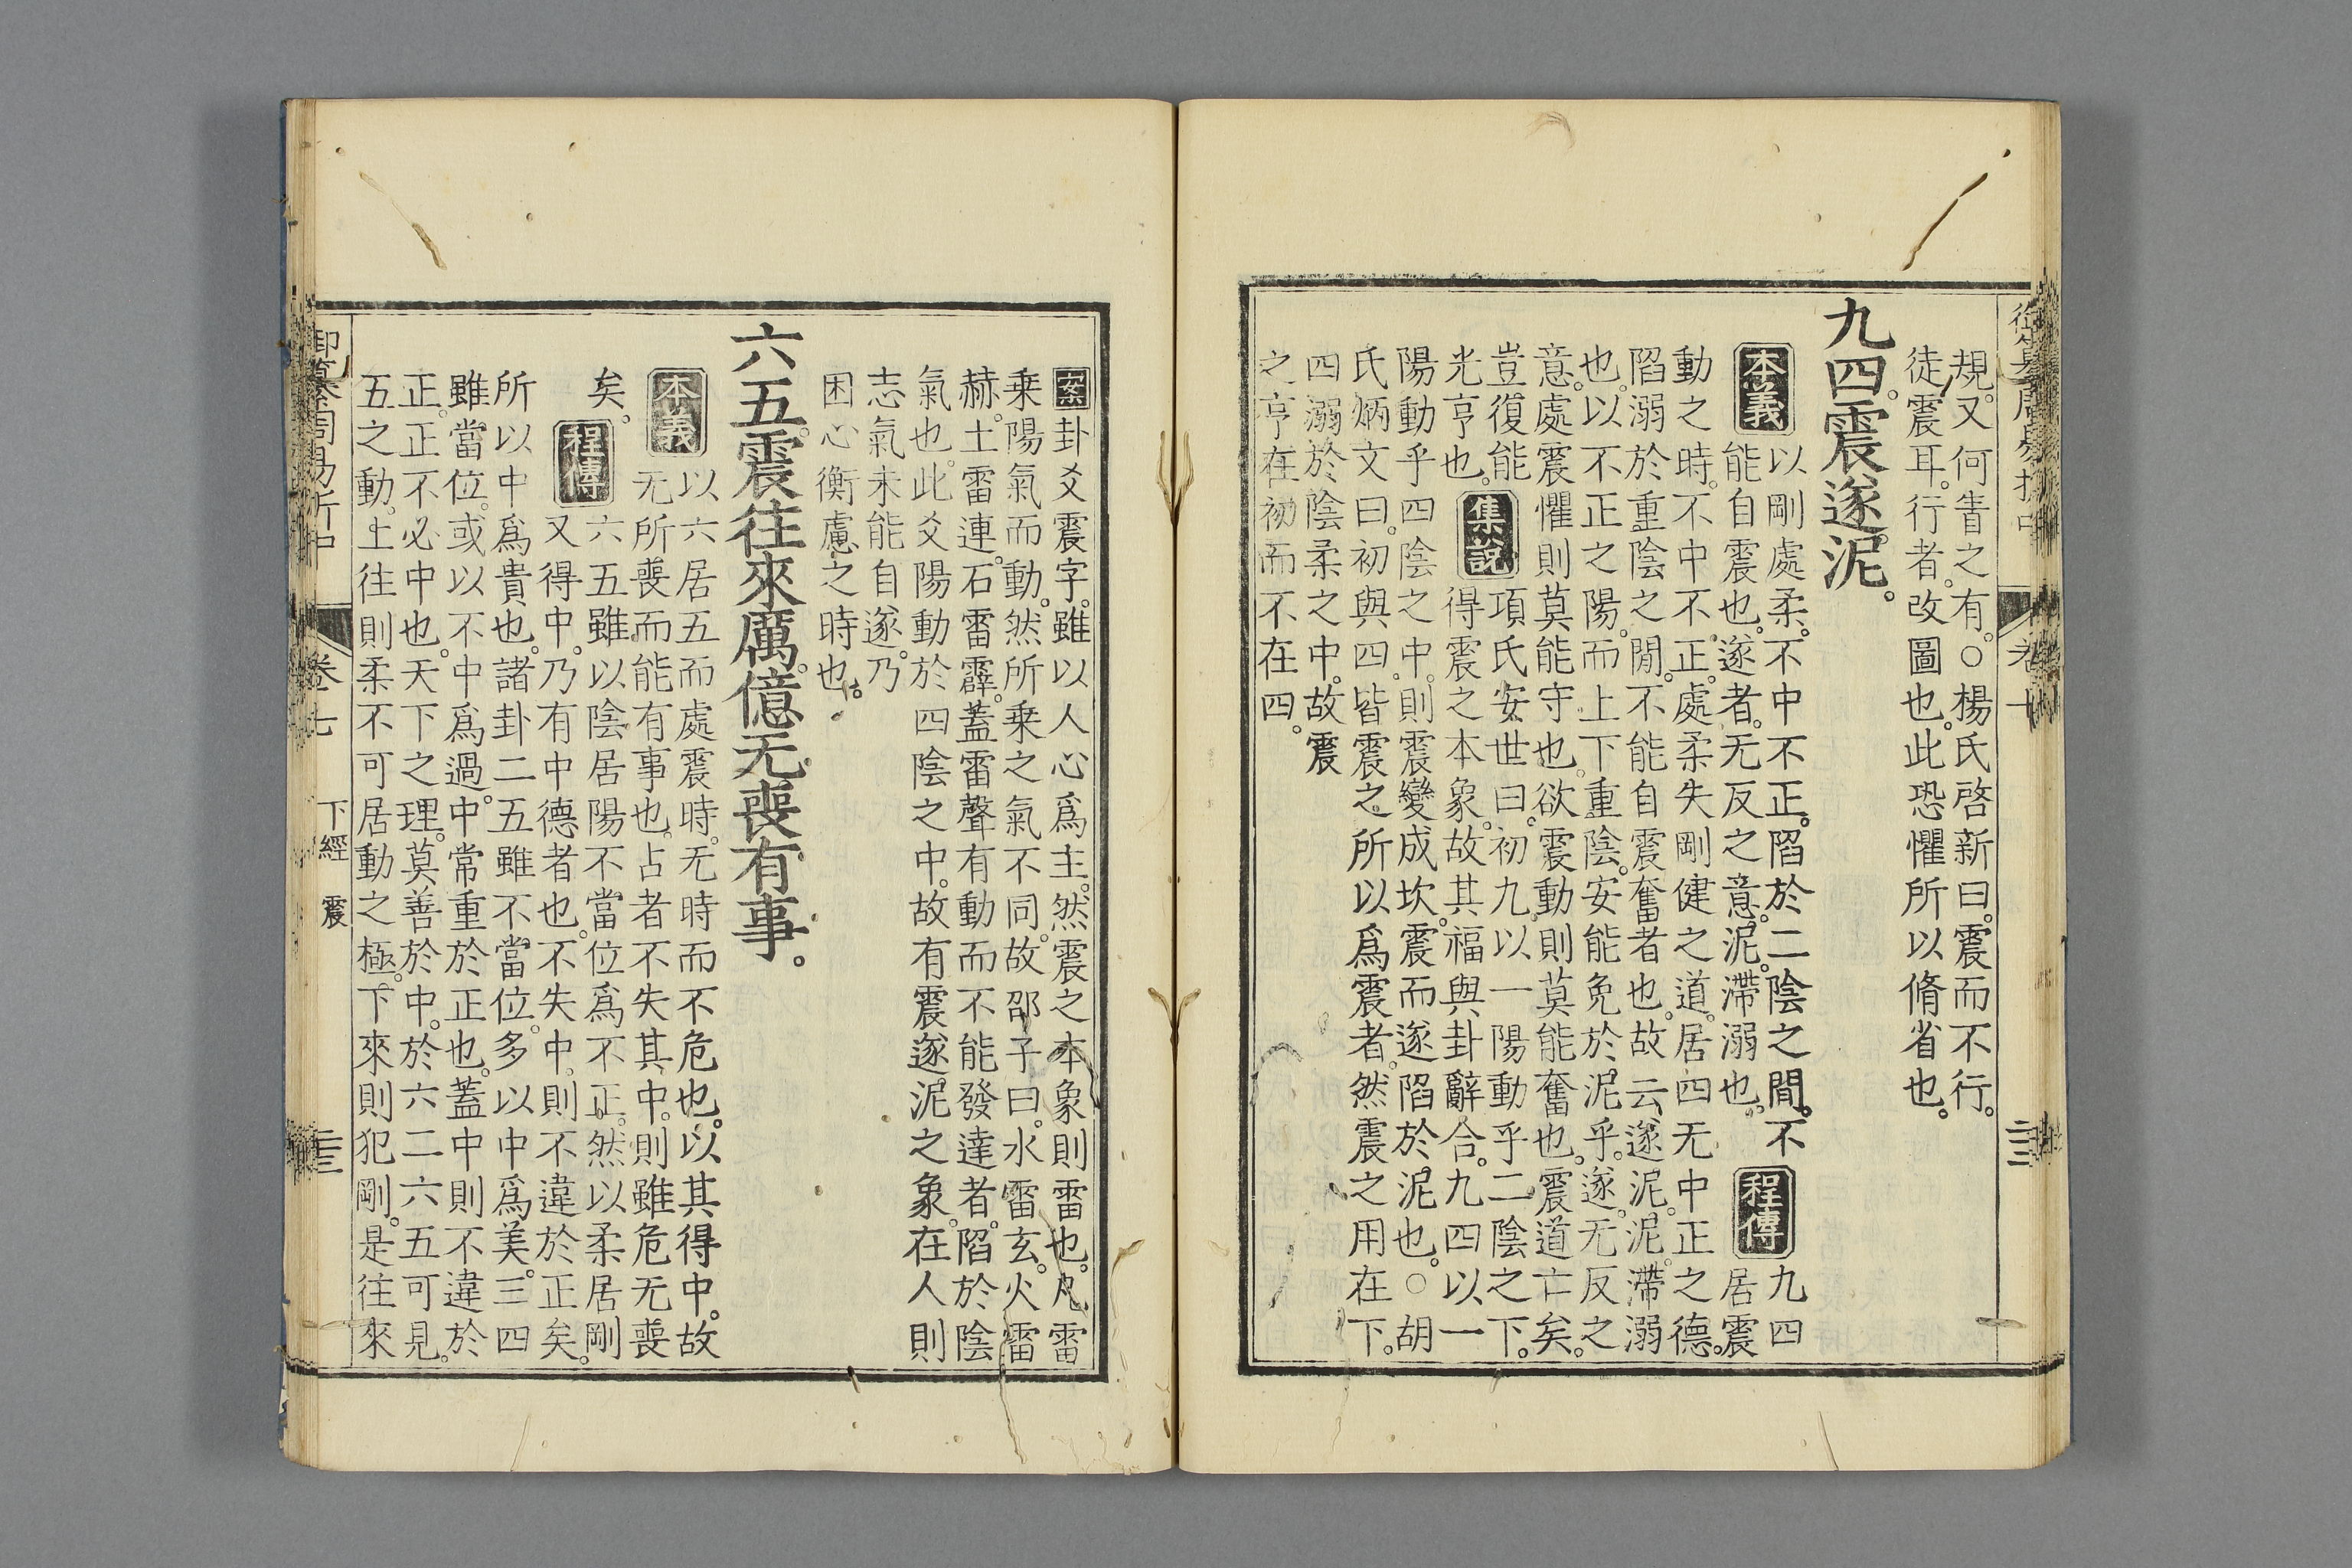 規又何眚之有○楊氏啓新曰震而不行
徒震耳行者改圖也此恐懼所以脩省也
九四震遂泥
本義 以剛處柔不中不正陷於二陰之間不
能自震也遂者无反之意泥滯溺也 程傳 九四
居震
動之時不中不正處柔失剛健之道居四无中正之德
陷溺於重陰之閒不能自震奮者也故云遂泥泥滯溺
也以不正之陽而上下重陰安能免於泥乎遂无反之
意處震懼則莫能守也欲震動則莫能奮也震道亡矣
豈復能
光亨也 集說 項氏安世曰初九以一陽動乎二陰之下
得震之本象故其福與卦辭合九四以一
陽動乎四陰之中則震變成坎震而遂陷於泥也○胡
氏炳文曰初與四皆震之所以爲震者然震之用在下
四溺於陰柔之中故震
之亨在初而不在四
案卦爻震字雖以人心爲主然震之本象則雷也凡雷
乗陽氣而動然所乗之氣不同故邵子曰水雷玄火雷
赫土雷連石雷霹蓋雷聲有動而不能發達者陷於陰
氣也此爻陽動於四陰之中故有震遂泥之象在人則
志氣未能自遂乃
困心衡慮之時也
六五震往來厲億无喪有事
本義 以六居五而處震時无時而不危也以其得中故
无所喪而能有事也占者不失其中則雖危无喪
矣 程傳 六五雖以陰居陽不當位爲不正然以柔居剛
又得中乃有中德者也不失中則不違於正矣
所以中爲貴也諸卦二五雖不當位多以中爲美三四
雖當位或以不中爲過中常重於正也蓋中則不違於
正正不必中也天下之理莫善於中於六二六五可見
五之動上往則柔不可居動之極下來則犯剛是往來
御纂周易折中 卷七 下經 震 三三